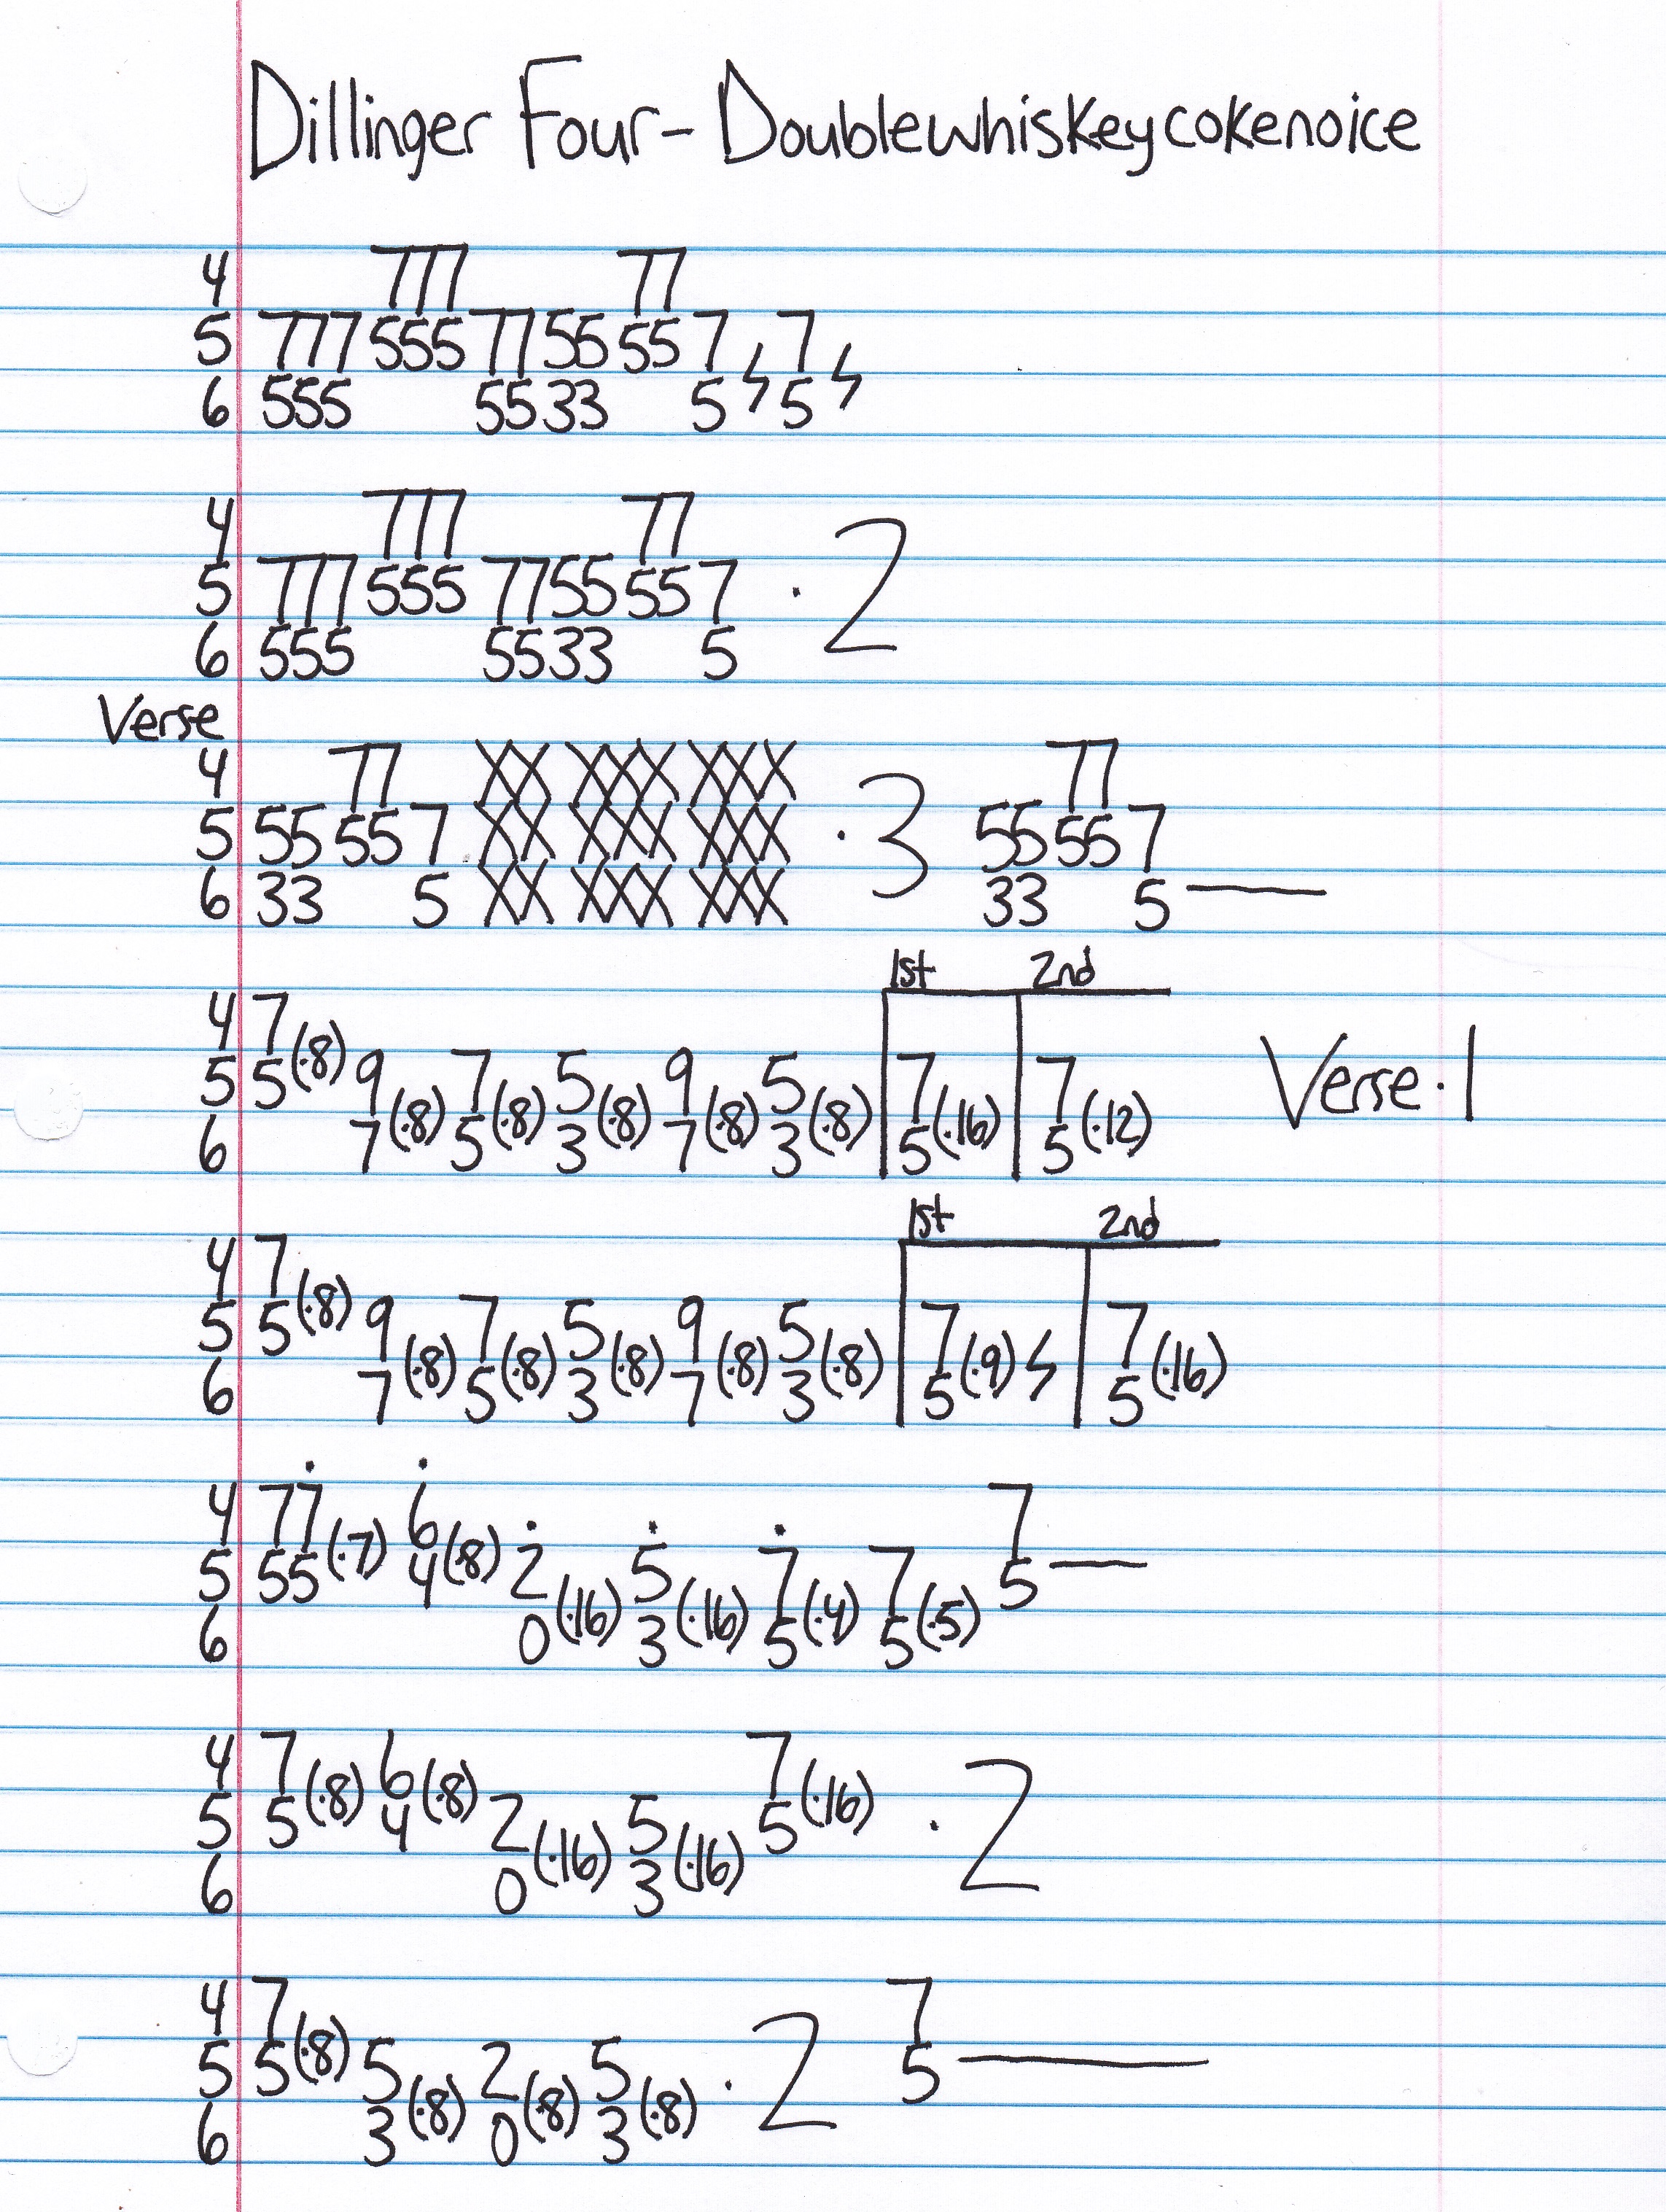 Dillinger Four - Doublewhiskeycokenoice
4 777 77
5 777 555 77 55 55 7 ϟ 7 ϟ
6 555 55 33 5 5
4 777 77
5 777 555 77 55 55 7 · 2
6 555 55 33 5
Verse
4 77 XX XXX XXX 77
5 55 55 7 XX XXX XXX · 3 55 55 7
6 33 5 XX XXX XXX 33 5 —
1st 2nd
4 7
5 5 (·8) 9 7 5 9 5 7 7 Verse · 1
6 7 (·8) 5 (·8) 3 (·8) 7 (·8) 3 (·8) 5 (·16) 5 (·12)
1st 2nd
4 7
5 5 (·8) 9 7 5 9 5 7 7
6 7 (·8) 5 (·8) 3 (·8) 7 (·8) 3 (·8) 5 (·9) ϟ 5 (·16)
4 77 6 7
5 55 (·7) 4 (·8) 2 5 7 7 5 —
6 0 (·16) 3 (·16) 5 (·4) 5 (·5)
4 7 6 7
5 5 (·8) 4 (·8) 2 5 5 (·16) · 2
6 0 (·16) 3 (·16)
4 7 7
5 5 (·8) 5 2 5 · 2 5 —
6 3 (·8) 0 (·8) 3 (·8)